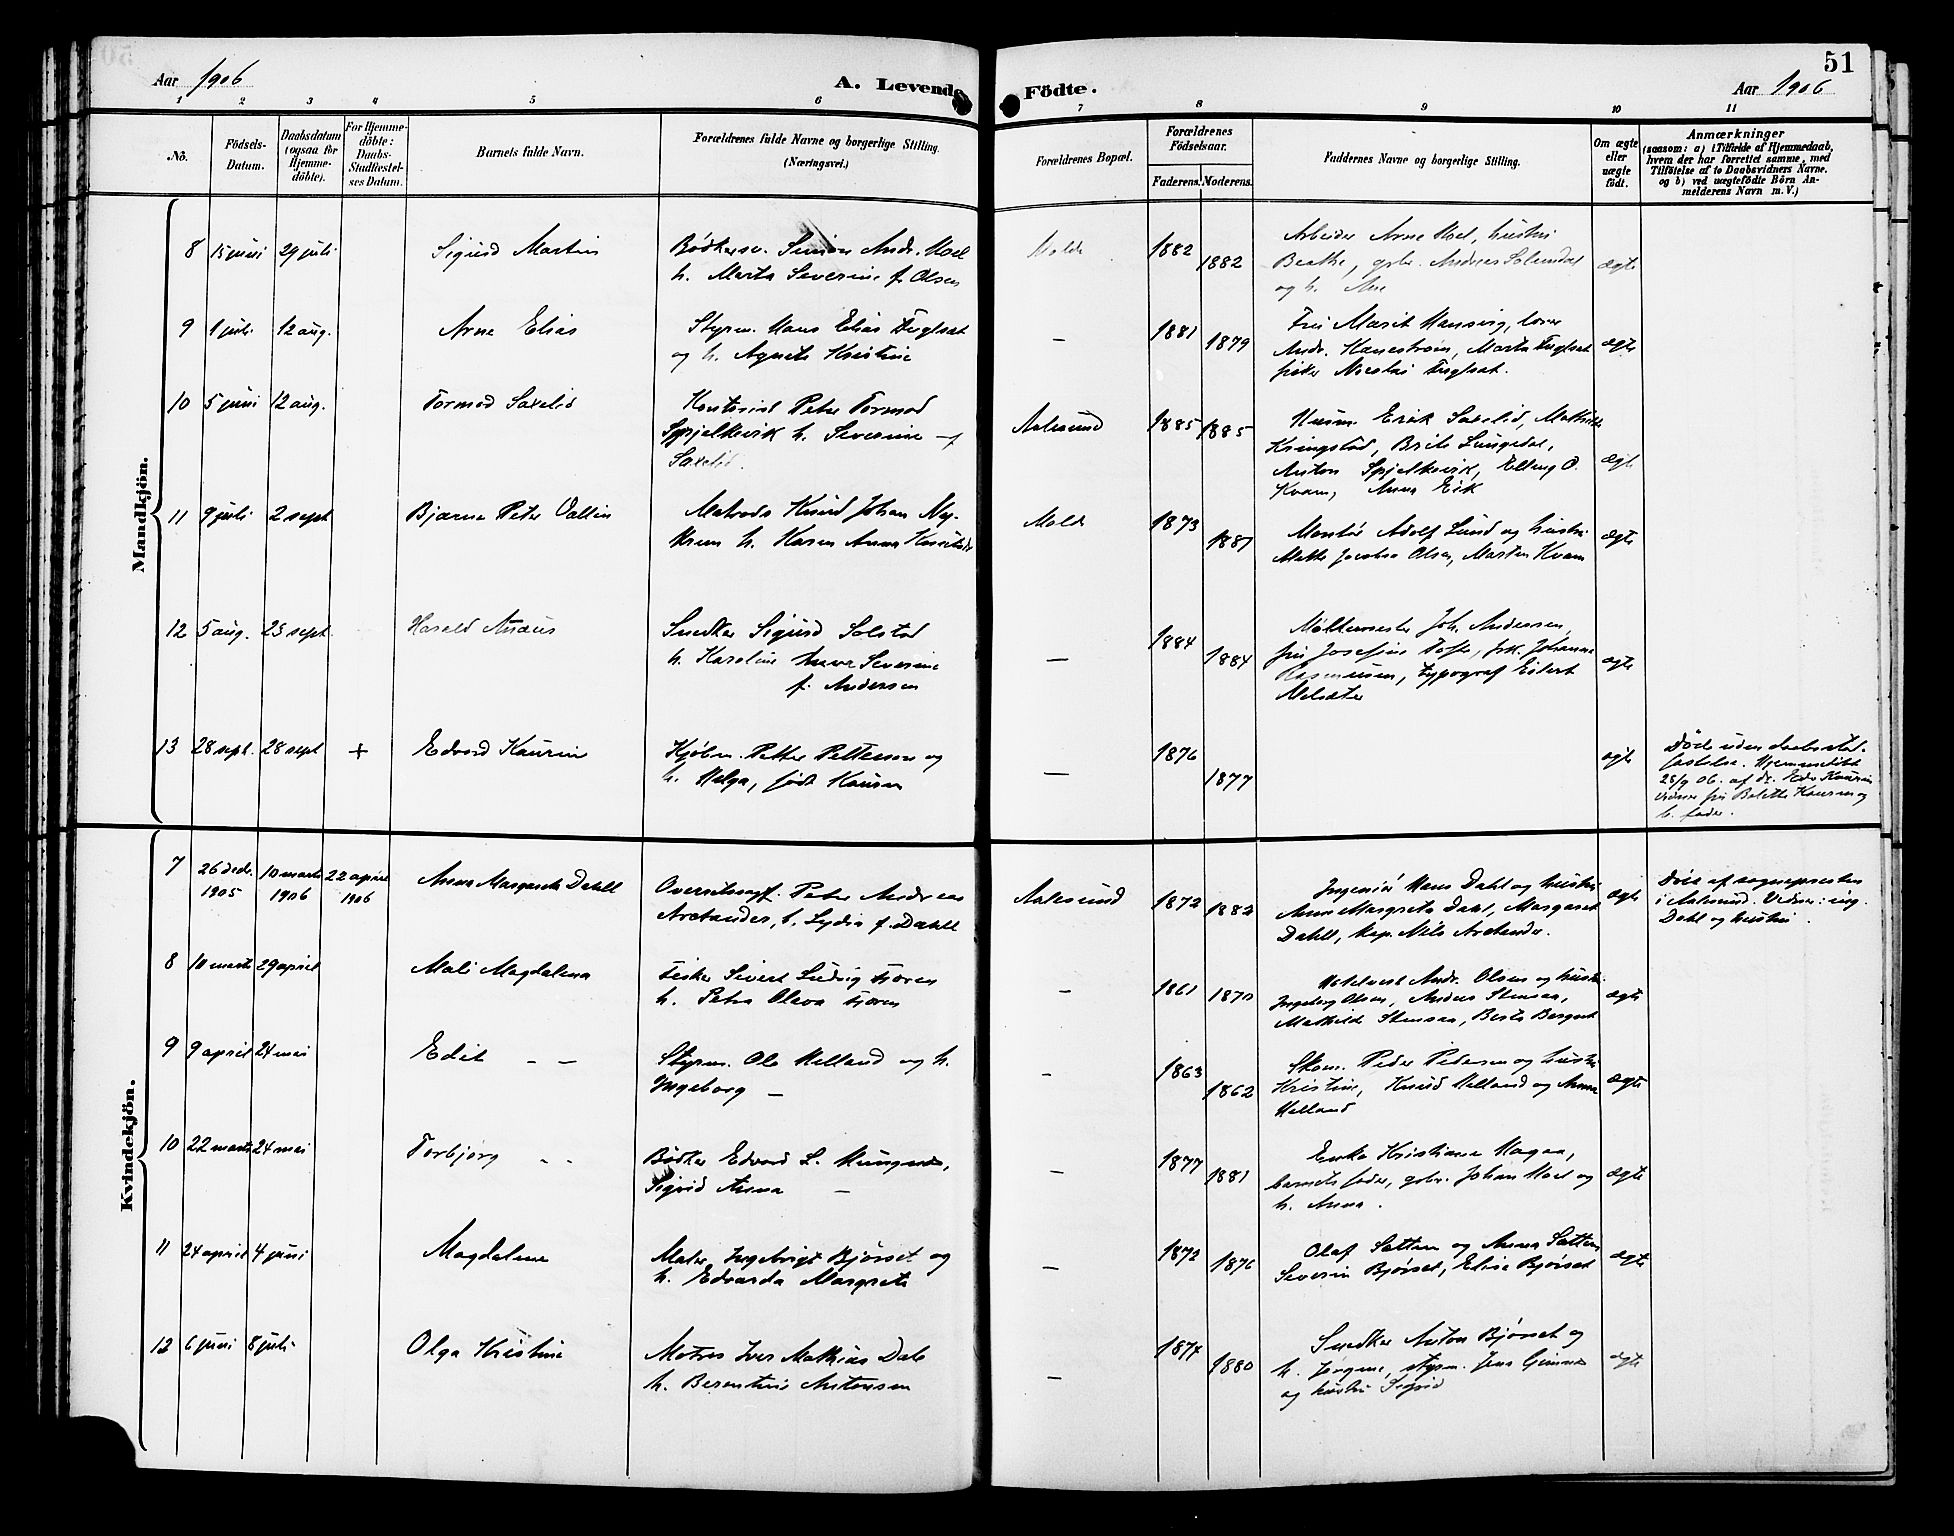 51
Aar 1906
A. Levende Födte.
Aar 1906
1 2 3 4 5 6 7 8 9 10 11
No.
Födsels-Datum.
Daabsdatum (ogsaa for Hjemme-döbte).
For Hjemme-döbte: Daabs-Stadfæstel-ses Datum.
Barnets fulde Navn.
Forældrenes fulde Navne og borgerlige Stilling. (Næringsvei.)
Forældrenes Bopæl.
Forældrenes Födselsaar.
Faderens. Moderens.
Faddernes Navne og borgerlige Stilling.
Om ægte eller uægte födt.
Anmærkninger
(saasom: a) i Tilfælde af Hjemmedaab, hvem der har forrettet samme, med Tilföielse af to Daabsvidners Navne. og b) ved uægtefödte Börn An-melderens Navn m. V.)
Mandkjön.
8 15 juni 29 juli Sigurd Martin
Bødkersv. Simon Andr. Moel
h. Marta Severine f. Olsen
Molde 1882 1882
Arbeider Arne Moel, hustru
Beathe, gbr. Andreas Solemdal
og h. Ane
ægte
9 1 juli 12 aug. Arne Elias
Styrm. Hans Elias Fuglset
og h. Agnete Kristine
— 1881 1879
Andr. Hanestrøm, Marta Fuglset
fisker Nicolai Fuglset.
ægte
10 5 juni 12 aug. Tormod Saxelid
Kontorist Peter Tormod
Spjelkevik h. Severine f
Saxelid.
Aalesund 1885 1885
Husm. Erik Saxelid, Mathilde
Kringstad, Brite Lungedal,
Anton Spjelkevik, Elling O.
Kvam, Anna Eik
ægte
11 9 juli 2 sept Bjarne Peter Vallin
Matros Knud Johan
h. Karen Anna
Molde 1873 1881
Montør Adolf Lund og hustru
Mette Jacoba Olsen, Marten Kvam
ægte
12 5 aug. 23 sept. Harald
Snedker Sigurd Solstad
h. Karoline Anna Severine
f. Andersen
— 1884 1884
Møllemester Joh. Andersen,
fru Josefine, frk. Johanne
Rasmussen, typograf Eilert
Melsæter
ægte
13 28 sept. 28 sept + Edvard Kaurin
Kjøbm. Petter Petterson og
h. Helga, født Kaurin
— 1876 1877
ægte
Døde uden daabsstad-
fæstelse. Hjemmedøbt
28/9 06. af dr. Edv Kaurin
vidner fru Bolette Kaurin og
b. fader.
Kvindekjön.
7 26 dec. 1905 10 marts 1906 22 april 1906 Anna Margareta Dahll
Overretssagf. Peter Andreas
Aretander, h. Lydia f. Dahll
Aalesund 1872 1882
Ingeniør Hans Dahl og hustru
Anna Margreta Dahl, Margaret
Dahll, kap. Nils Aretander.
ægte
Døbt af sognepresten
i Aalesund. Vidner: ing.
Dahl og hustru.
8 10 marts 29 april Mali Magdalena
Fisker Sivert Ludvig Fjøren
h. Petra Oleva Fjøren
— 1861 1870
Hotelvert Andr. Olsen og hustru
Ingeborg Olsen, Anders Stensaa,
Mathilde Stensaa, Berte
ægte
9 9 april 24 mai Edit — —
Styrm. Ole Helland og h.
Ingeborg —
— 1863 1862
Skom. Peder Pedersen og hustru
Kristine, Knud Helland og Anna
Helland
ægte
10 22 marts 24 mai Torbjørg - -
Bødker Edvard L.
Sigrid Anna —
— 1877 1881
Enke Kristiane Hagaa,
barnets fader, gbr. Johan Moel og
h. Anna.
ægte
11 24 april 4 juni Magdalene
Maler Ingebrigt Bjørset og
h. Edvarda Margrete
— 1872 1876
Olaf Sætten og Anna Sætten
Severin Bjørset, Elise Bjørset
ægte
12 6 juni 8 juli Olga Kristine
Matros Iver Mathias Dale
h. Berentine Antonsen
— 1877 1880
Snedker Anton Bjørset og
h. Jørgine, styrm. Jens Gimnes
og hustru Sigrid
ægte